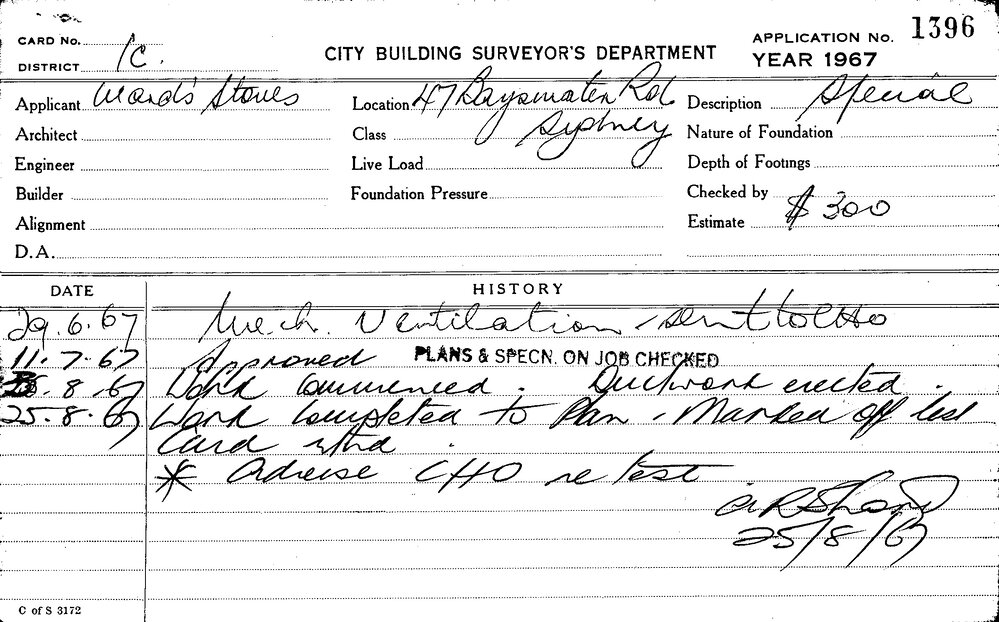 CARD No.
DISTRICT 1c.
CITY BUILDING SURVEYOR'S DEPARTMENT
APPLICATION No. 1396
YEAR 1967
Applicant Ward's Stores
Location 47 Bayswater Rd.
Sydney
Description Special
Architect
Class
Nature of Foundation
Engineer
Live Load
Depth of Footings
Builder
Foundation Pressure
Checked by
Alignment
Estimate $300
D.A.
DATE
HISTORY
29.6.67 Mech. Ventilation - sent to CHO
11.7.67 Approved PLANS & SPECN. ON JOB CHECKED
8.67 Work commenced. Ductwork erected.
25.8.67 Work completed to Plan. Marked off
Card
* Advise CHO re test
25/8/67
C of S 3172